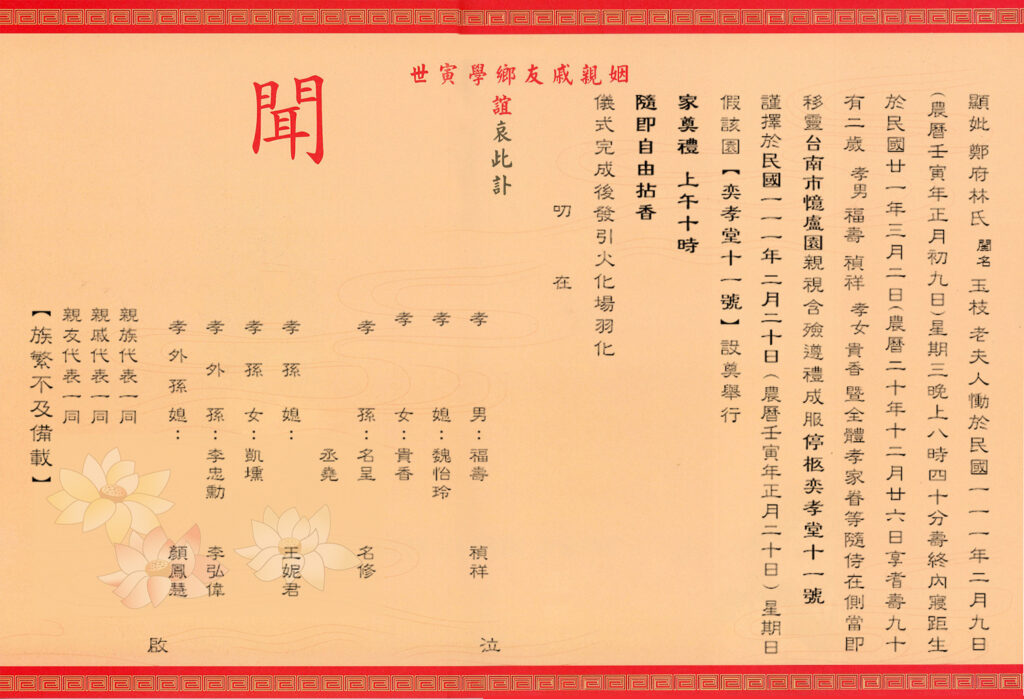 顯妣 鄭府林氏 閨名 玉枝 老夫人慟於民國一一一年二月九日
(農曆壬寅年正月初九日)星期三晚上八時四十分壽終內寢距生
於民國廿一年三月二日(農曆二十年十二月廿六日享耆壽九十
有二歲 孝男 福壽 禎祥 孝女 貴香 暨全體孝家眷等隨侍在側當即
移靈台南市憶盧園親視含殮遵禮成服停柩奕孝堂十一號
謹擇於民國一一一年二月二十日(農曆壬寅年正月二十日)星期日
假該園【奕孝堂十一號】設奠舉行
家奠禮 上午十時
隨即自由拈香
儀式完成後發引火化場羽化
叨 在
姻親戚友鄉學寅世
誼哀此訃
聞
孝 男：福壽 禎祥 泣
孝 媳：魏怡玲
孝 女：貴香
孝 孫：名呈 名修
丞堯
孝 孫 媳： 王妮君
孝 孫 女：凱壎
孝 外 孫：李忠勳 李弘偉
孝 外 孫 媳： 顏鳳慧 啟
親族代表一同
親戚代表一同
親友代表一同
【族繁不及備載】